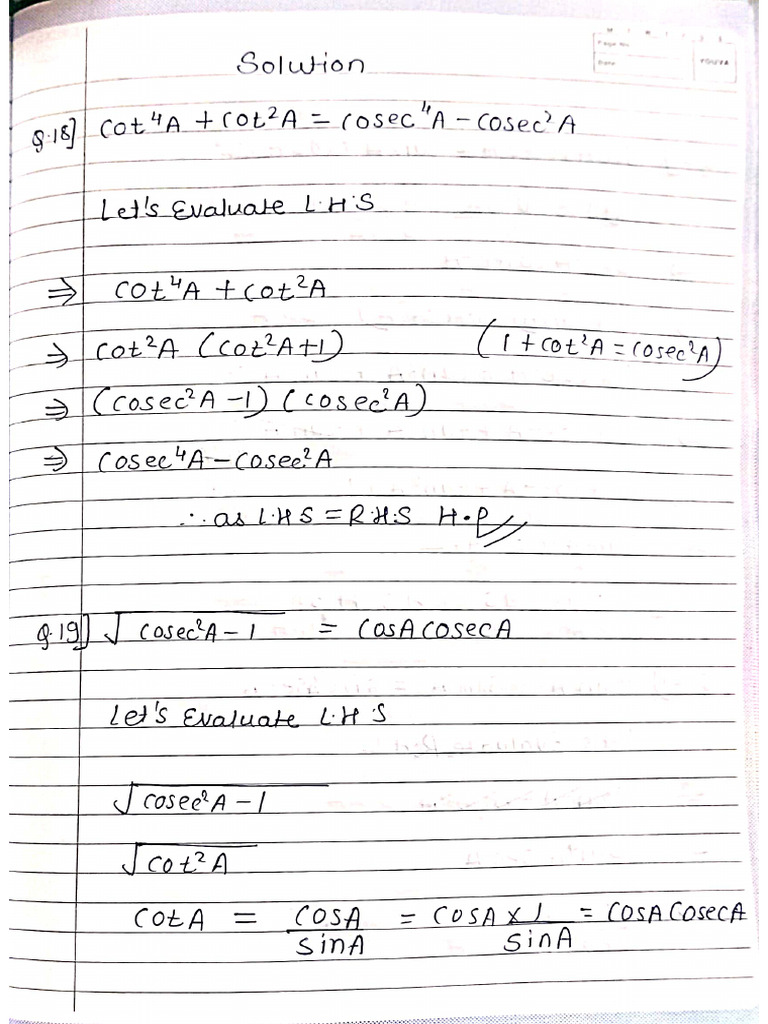 Solution
Page No.
Date
YOUVA
Q.18] cot⁴A + cot²A = cosec⁴A - cosec²A
Let's Evaluate L.H.S
⇒ cot⁴A + cot²A
⇒ cot²A (cot²A+1) (1 + cot²A = cosec²A)
⇒ (cosec²A - 1) (cosec²A)
⇒ cosec⁴A - cosec²A
∴ as L.H.S = R.H.S H.P
Q.19] √cosec²A - 1 = cosA cosecA
Let's Evaluate L.H.S
√cosec²A - 1
√cot²A
cotA = cosA/sinA = cosA × 1/sinA = cosA cosecA